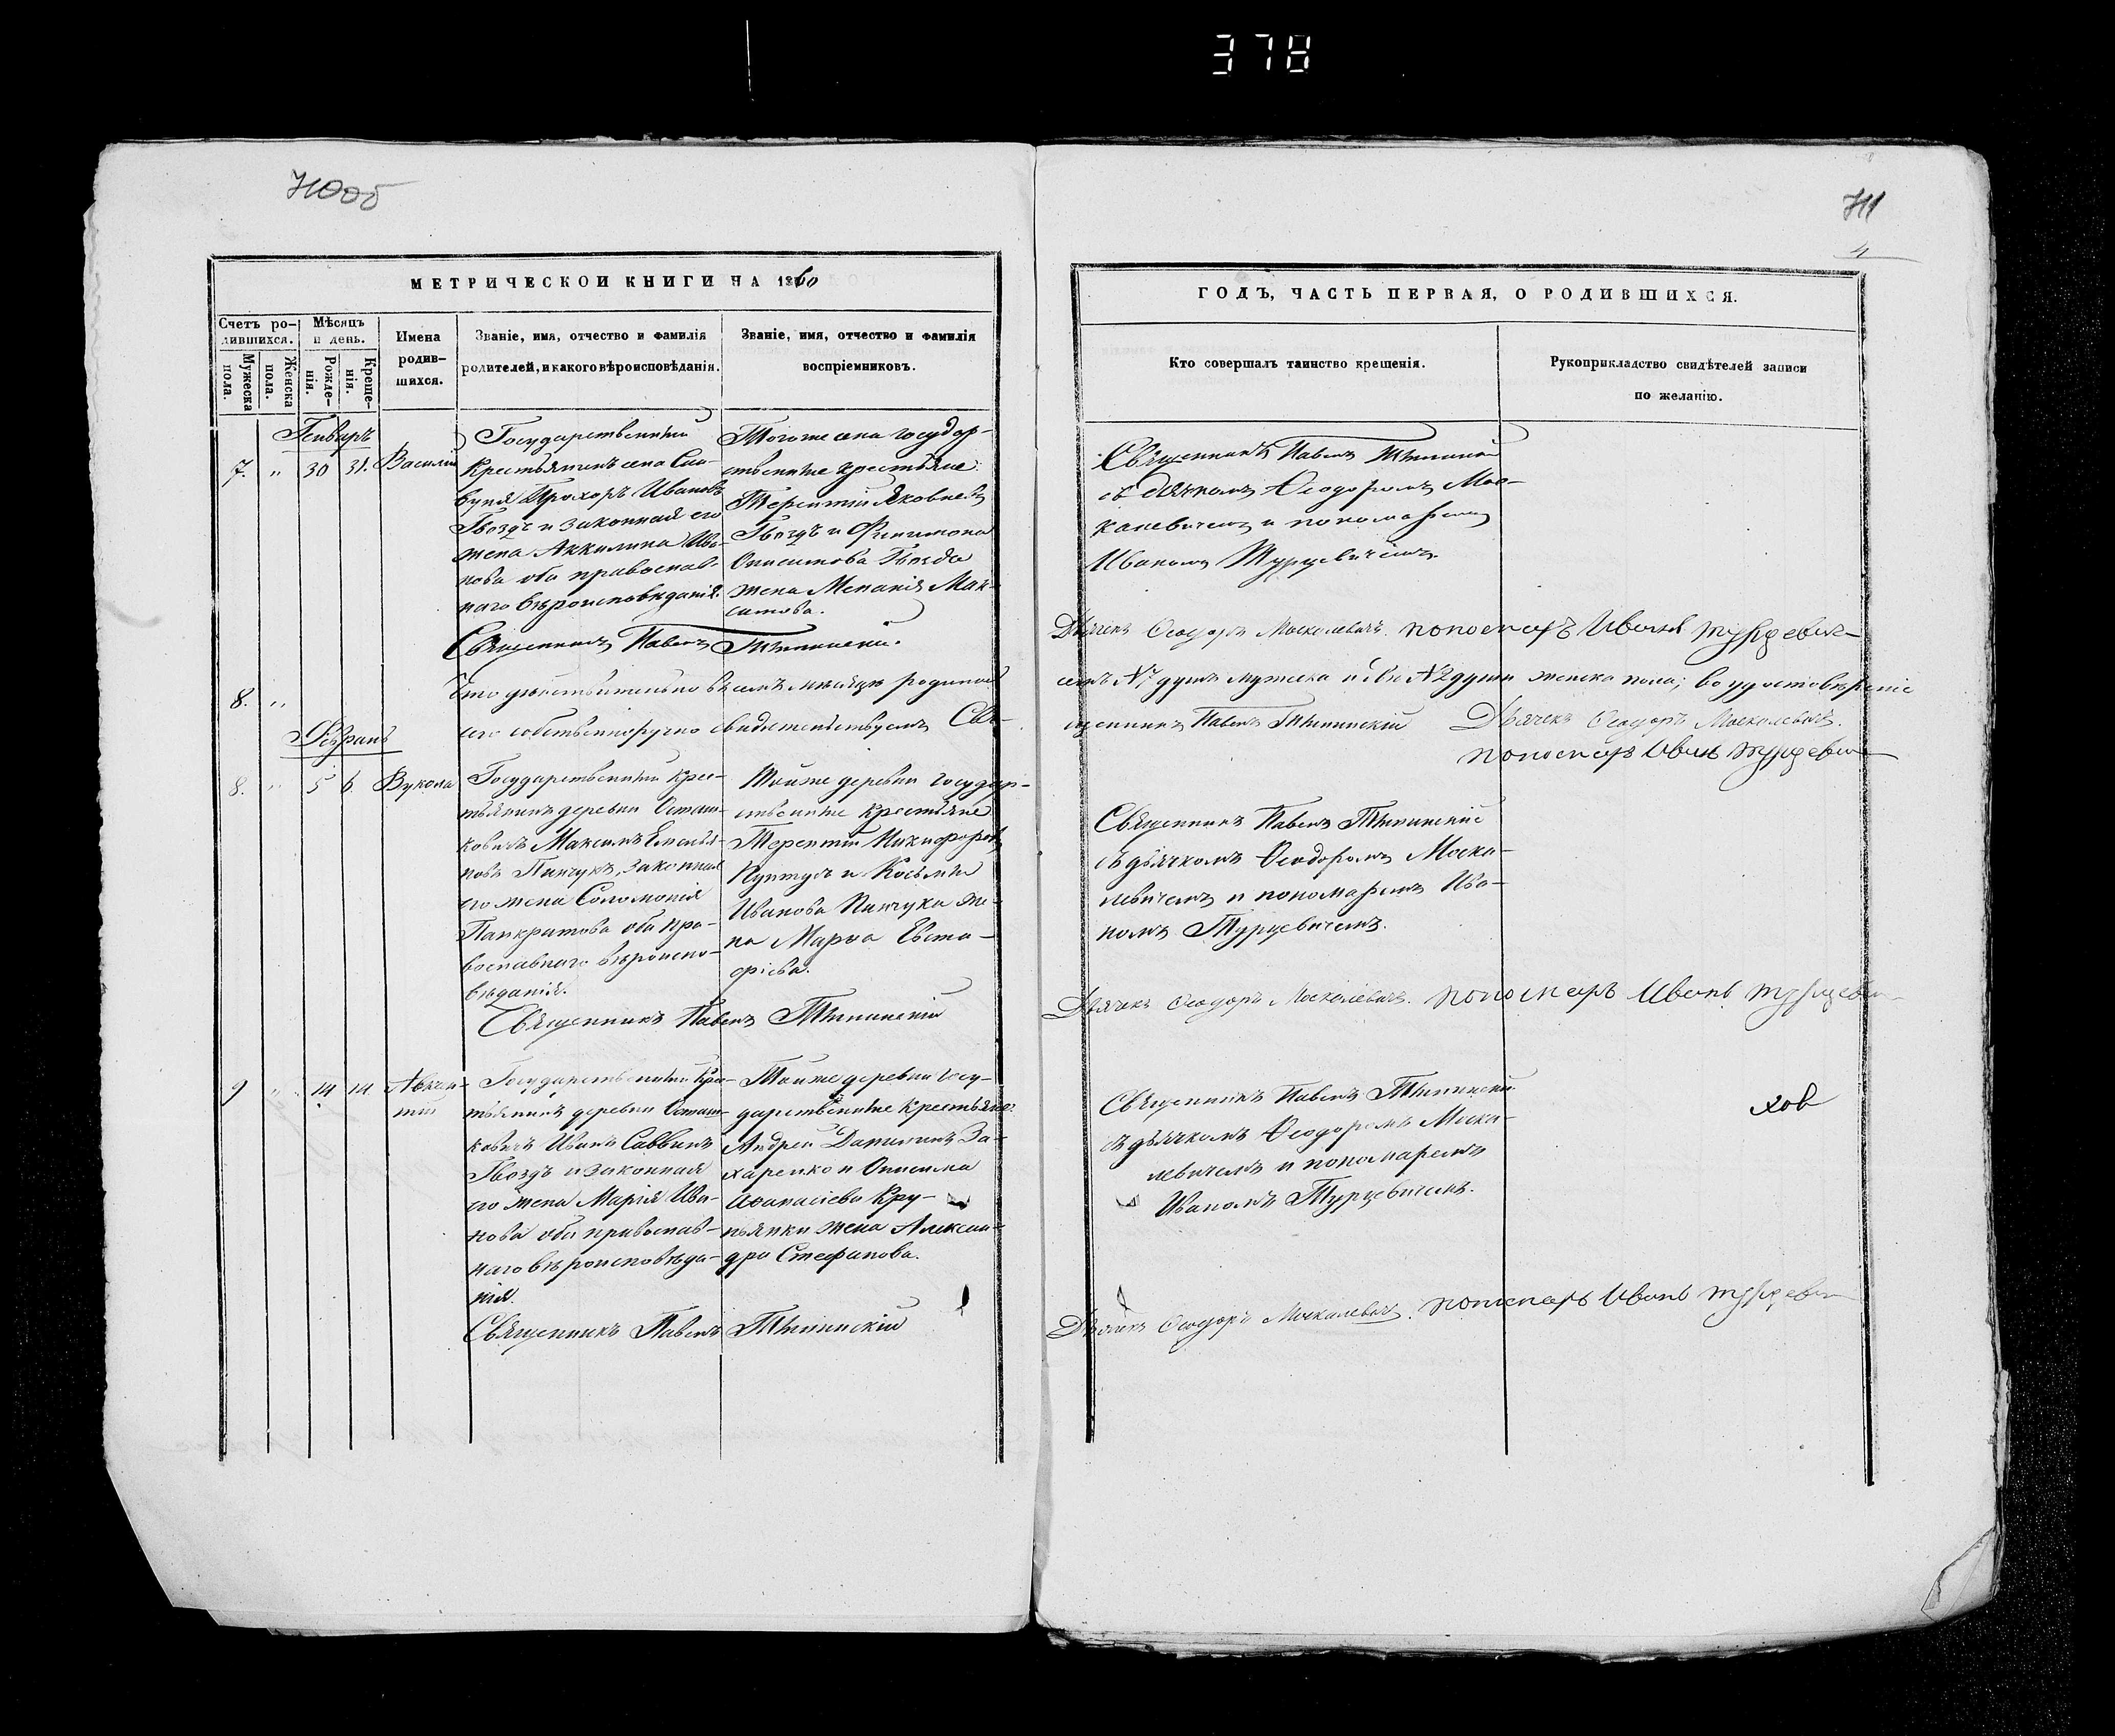 378
710об
711
4
МЕТРИЧЕСКОЙ КНИГИ НА 1860
Счетъ ро-
дившихся.
Мѣсяцъ
и день.
Мужеска
пола.
Женска
пола.
Рожде-
нія.
Креще-
нія.
Имена
родив-
шихся.
Званіе, имя, отчество и фамилія
родителей, и какого вѣроисповѣданія.
Званіе, имя, отчество и фамилія
воспріемниковъ.
Генварь
7. " 30 31. Василій
Государственный
крестьянинъ села
Прохоръ Ивановъ
Гвоздъ и законная его
жена Аккилина Ива-
нова оба православ-
наго вѣроисповѣданія.
Тогоже села государ-
ственные крестьяне:
Терентій Яковлевъ
Гвоздъ и Филимона
Онисимова Гвозда
жена Меланія Мак-
симова.
Священникъ Павелъ
8. "
Что дѣйствительно въ семъ мѣсяцѣ родилось
сего собственноручно свидѣтельствуемъ Свя-
Февраль
8. " 5 6. Вукола
Государственный крес-
тьянинъ деревни Осташ-
ковичъ Максимъ Емелья-
новъ Пинчукъ, законная
его жена Соломонія
Панкратова оба пра-
вославнаго вѣроиспо-
вѣданія.
Тойже деревни государ-
ственные крестьяне
Терентій Никифоровъ
и Козьмы
Иванова Пинчука же-
на Марѳа Евста-
фіева.
Священникъ Павелъ
9 " 14 14 Авксен-
тій
Государственный крес-
тьянинъ деревни Осташ-
ковичъ Иванъ Саввинъ
Гвоздъ и законная
его жена Марія Ива-
нова оба православ-
наго вѣроисповѣда-
нія.
Тойже деревни госу-
дарственные крестьяне:
Андрей Даниловъ За-
харенко и Онисима
Аѳанасіева Кру-
пьянки жена Алексан-
дра Стефанова.
Священникъ Павелъ
ГОДЪ, ЧАСТЬ ПЕРВАЯ, О РОДИВШИХСЯ.
Кто совершалъ таинство крещенія.
Рукоприкладство свидѣтелей записи
по желанію.
Священникъ Павелъ
съ дьячкомъ Ѳеодоромъ Мос-
калевичемъ и пономаремъ
Иваномъ Турцевичемъ.
Дьячекъ Ѳеодоръ Москалевичъ. пономарь Иванъ Турцевичъ
семъ №7 душъ мужеска и №2 души женска пола; во удостовѣреніе
щенникъ Павелъ
Дьячекъ Ѳеодоръ Москалевичъ.
пономарь Иванъ Турцевичъ
Священникъ Павелъ
съ дьячкомъ Ѳеодоромъ Моска-
левичемъ и пономаремъ Ива-
номъ Турцевичемъ.
Дьячекъ Ѳеодоръ Москалевичъ. пономарь Иванъ Турцевичъ
Священникъ Павелъ
съ дьячкомъ Ѳеодоромъ Моска-
левичемъ и пономаремъ
Иваномъ Турцевичемъ.
хов
Дьячекъ Ѳеодоръ Москалевичъ. пономарь Иванъ Турцевичъ